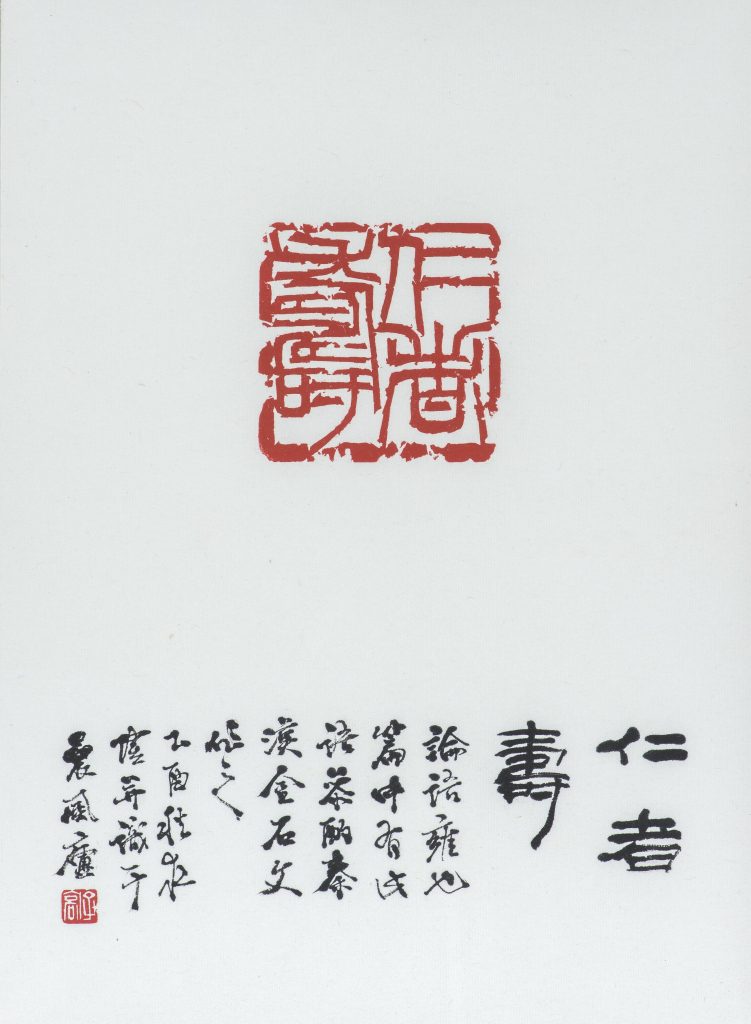 仁者
壽
仁者
壽
論語雍也
篇中有此
語參酌秦
漢金石文
作之
乙酉秋
并識于
晨風廬